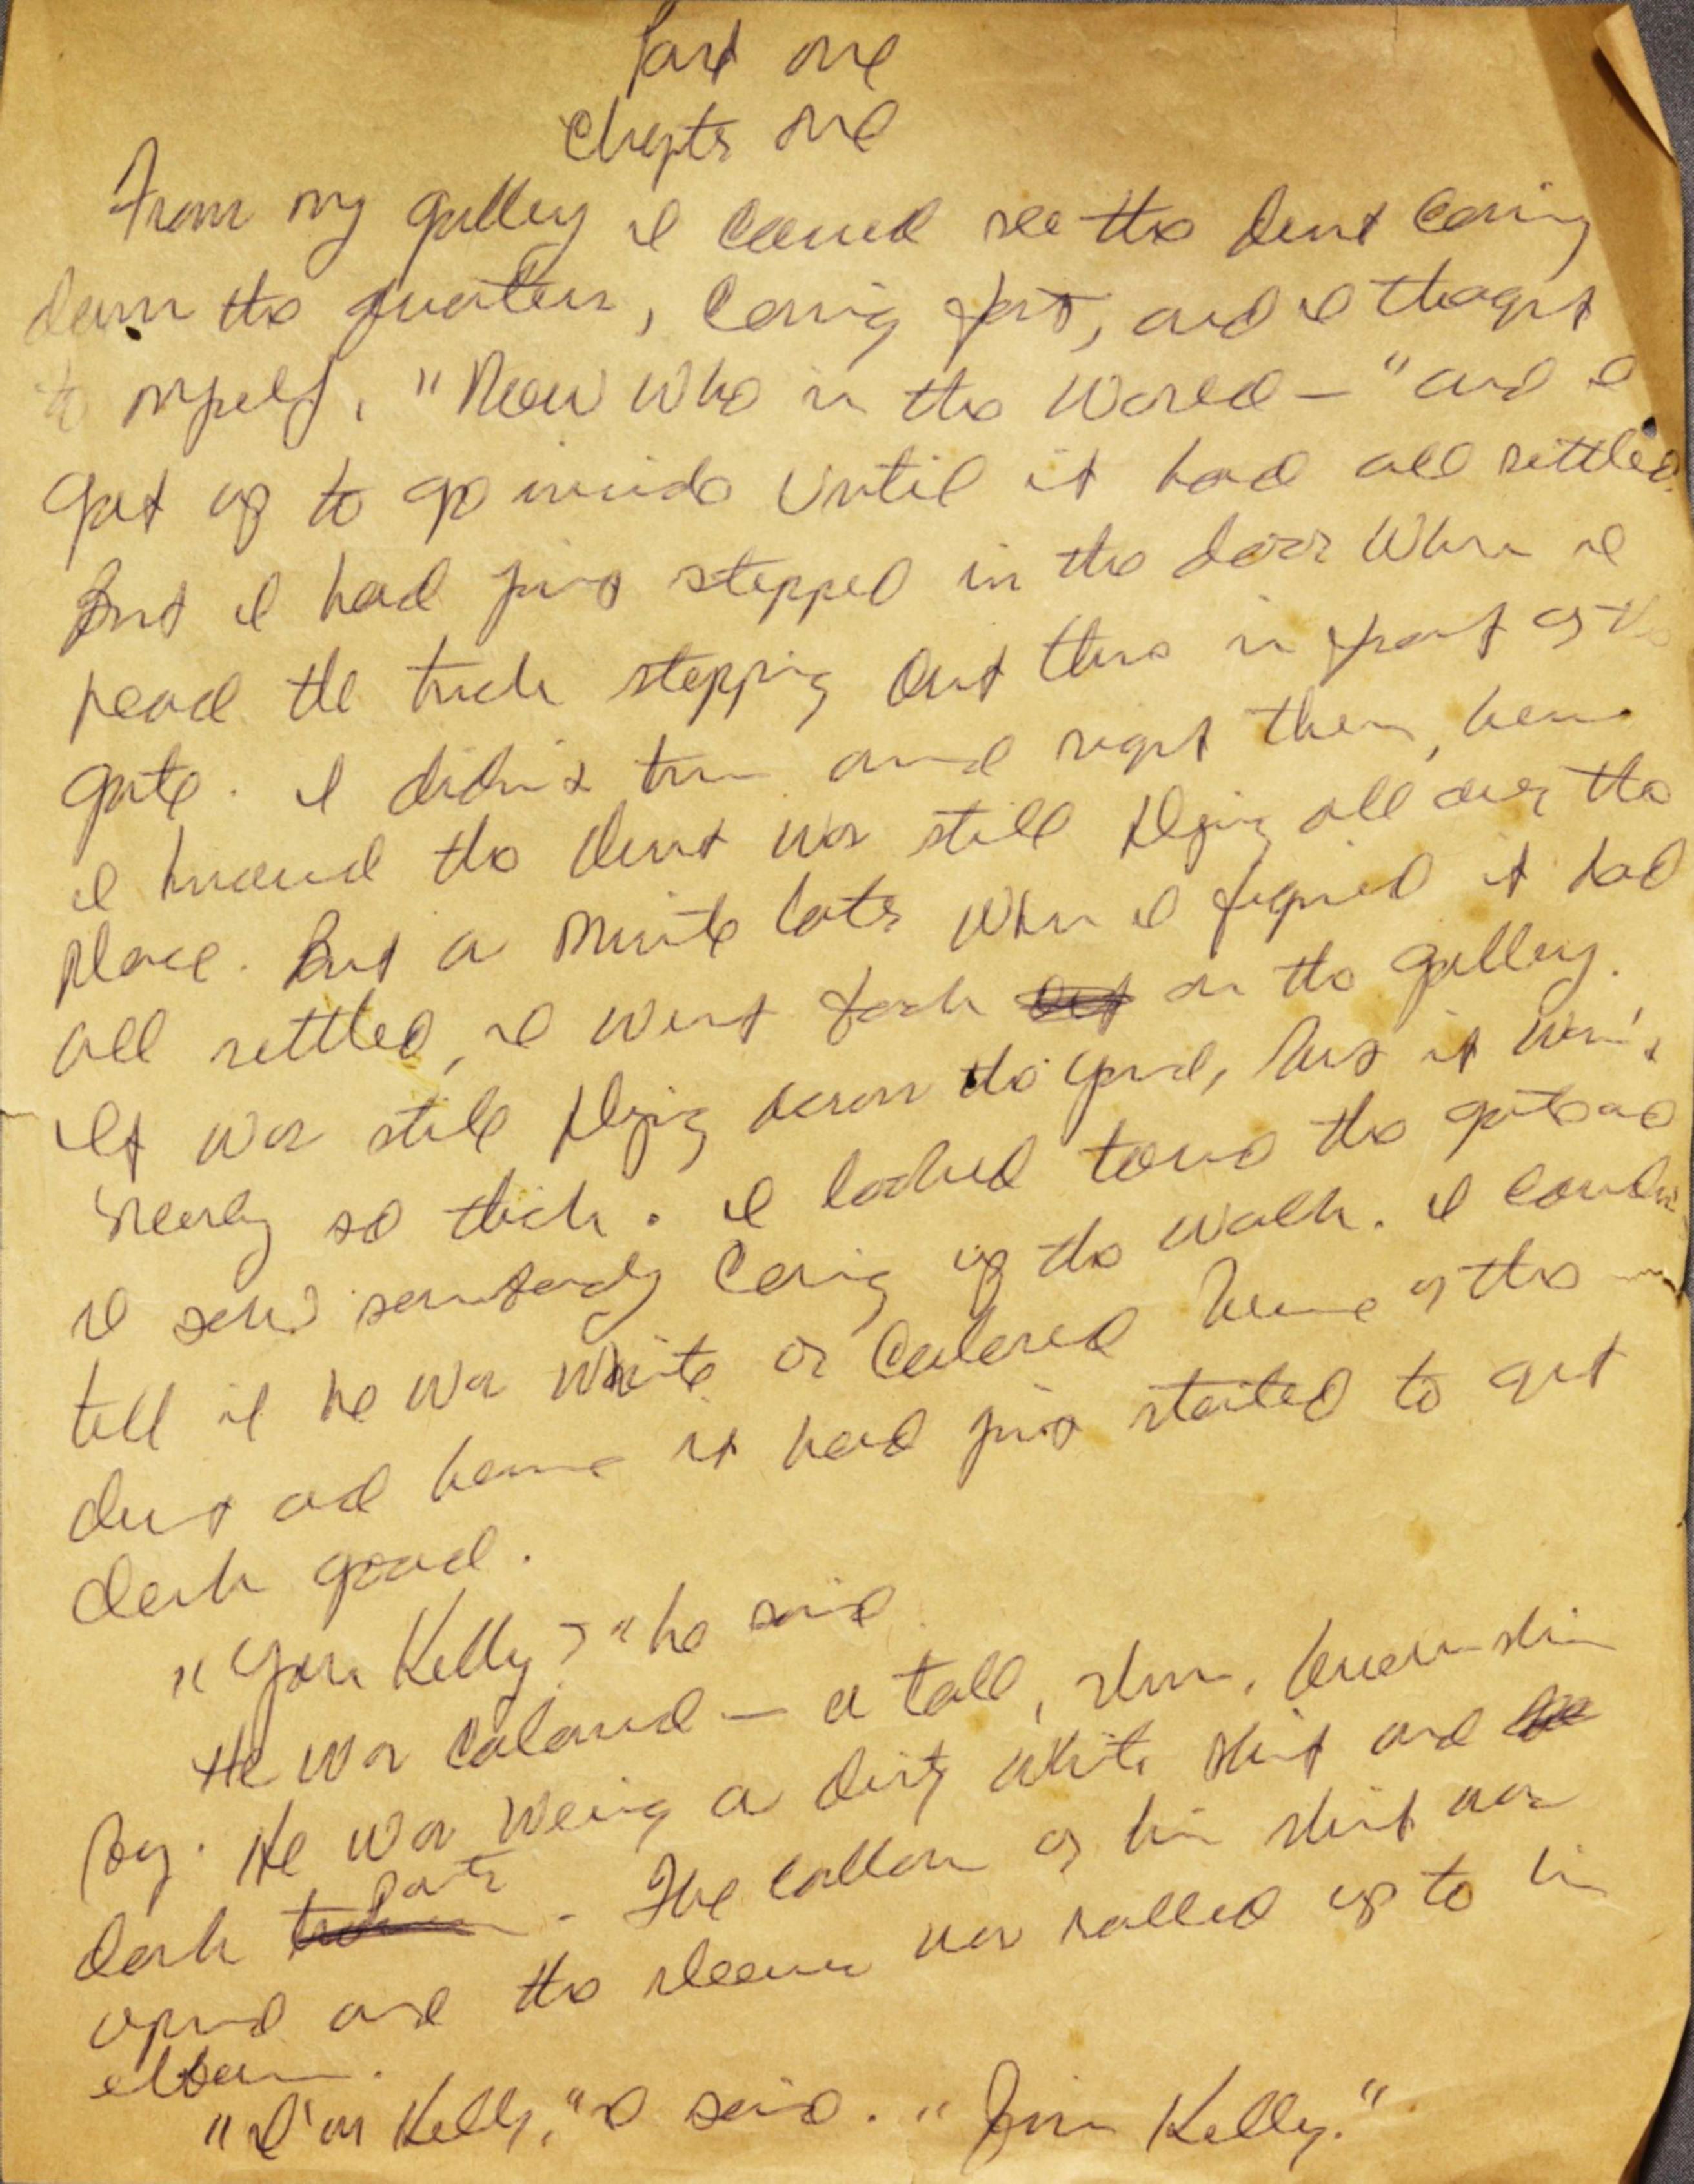 Part one
Chapter one
From my gallery I could see the dust coming
down the quarters, coming fast, and I thought
to myself, "Now who in the world—" and I
got up to go inside until it had all settled.
But I had just stepped in the door when I
heard the truck stopping out there in front of the
gate. I didn't turn around right then, because
I knowed the dust was still flying all over the
place. But a minute later when I figured it had
all settled, I went back out on the gallery.
It was still flying across the yard, but it wasn't
nearly so thick. I looked toward the gate and
I saw somebody coming up the walk. I couldn't
tell if he was white or colored because of the
dust and because it had just started to get
dark good.
"You Kelly?" he said
He was colored — a tall, slim, brownskin
boy. He was wearing a dirty white shirt and
dark pants. The collar of his shirt was
opened and the sleeves was rolled up to his
elbow.
"I'm Kelly," I said. "Jim Kelly."